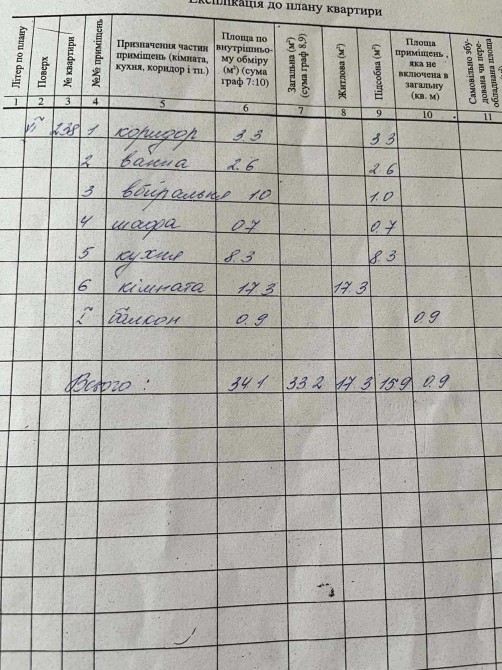 Експлікація до плану квартири
Літер по плану | Поверх | № квартири | №№ приміщень | Призначення частин приміщень (кімната, кухня, коридор і тп.) | Площа по внутрішньо-му обміру (м²) (сума граф 7:10) | Загальна (м²) (сума граф 8,9) | Житлова (м²) | Підсобна (м²) | Площа приміщень, яка не включена в загальну (кв. м) | Самовільно збу-дована чи пере-обладнана площа
1 | 2 | 3 | 4 | 5 | 6 | 7 | 8 | 9 | 10 | 11
VI | 238 | 1 | коридор | 3.3 | 3.3
2 | ванна | 2.6 | 2.6
3 | вбиральня | 1.0 | 1.0
4 | шафа | 0.7 | 0.7
5 | кухня | 8.3 | 8.3
6 | кімната | 17.3 | 17.3
I | балкон | 0.9 | 0.9
Всього : | 34.1 | 33.2 | 17.3 | 15.9 | 0.9